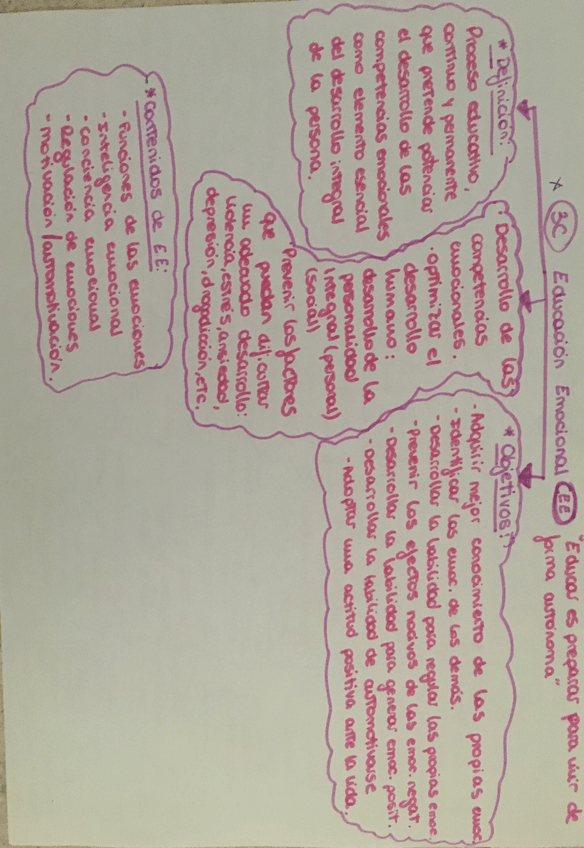 * 3C Educación Emocional (EE)
"Educar es preparar para vivir de
forma autónoma"
* Definición:
Proceso educativo,
continuo y permanente
que pretende potenciar
el desarrollo de las
competencias emocionales
como elemento esencial
del desarrollo integral
de la persona.
· Desarrollo de las
competencias
emocionales.
· Optimizar el
desarrollo
humano:
desarrollo de la
personalidad
integral (personal)
(social)
Prevenir los factores
que puedan dificultar
un adecuado desarrollo:
violencia, estrés, ansiedad,
depresión, drogadicción, etc.
* Objetivos:
- Adquirir mejor conocimiento de las propias emoc.
- Identificar las emoc. de los demás.
- Desarrollar la habilidad para regular las propias emoc.
- Prevenir los efectos nocivos de las emoc. negat.
- Desarrollar la habilidad para generar emoc. posit.
- Desarrollar la habilidad de automotivarse
- Adoptar una actitud positiva ante la vida.
* Contenidos de EE:
- Funciones de las emociones
- Inteligencia emocional
- Conciencia emocional
- Regulación de emociones
- Motivación / automotivación.